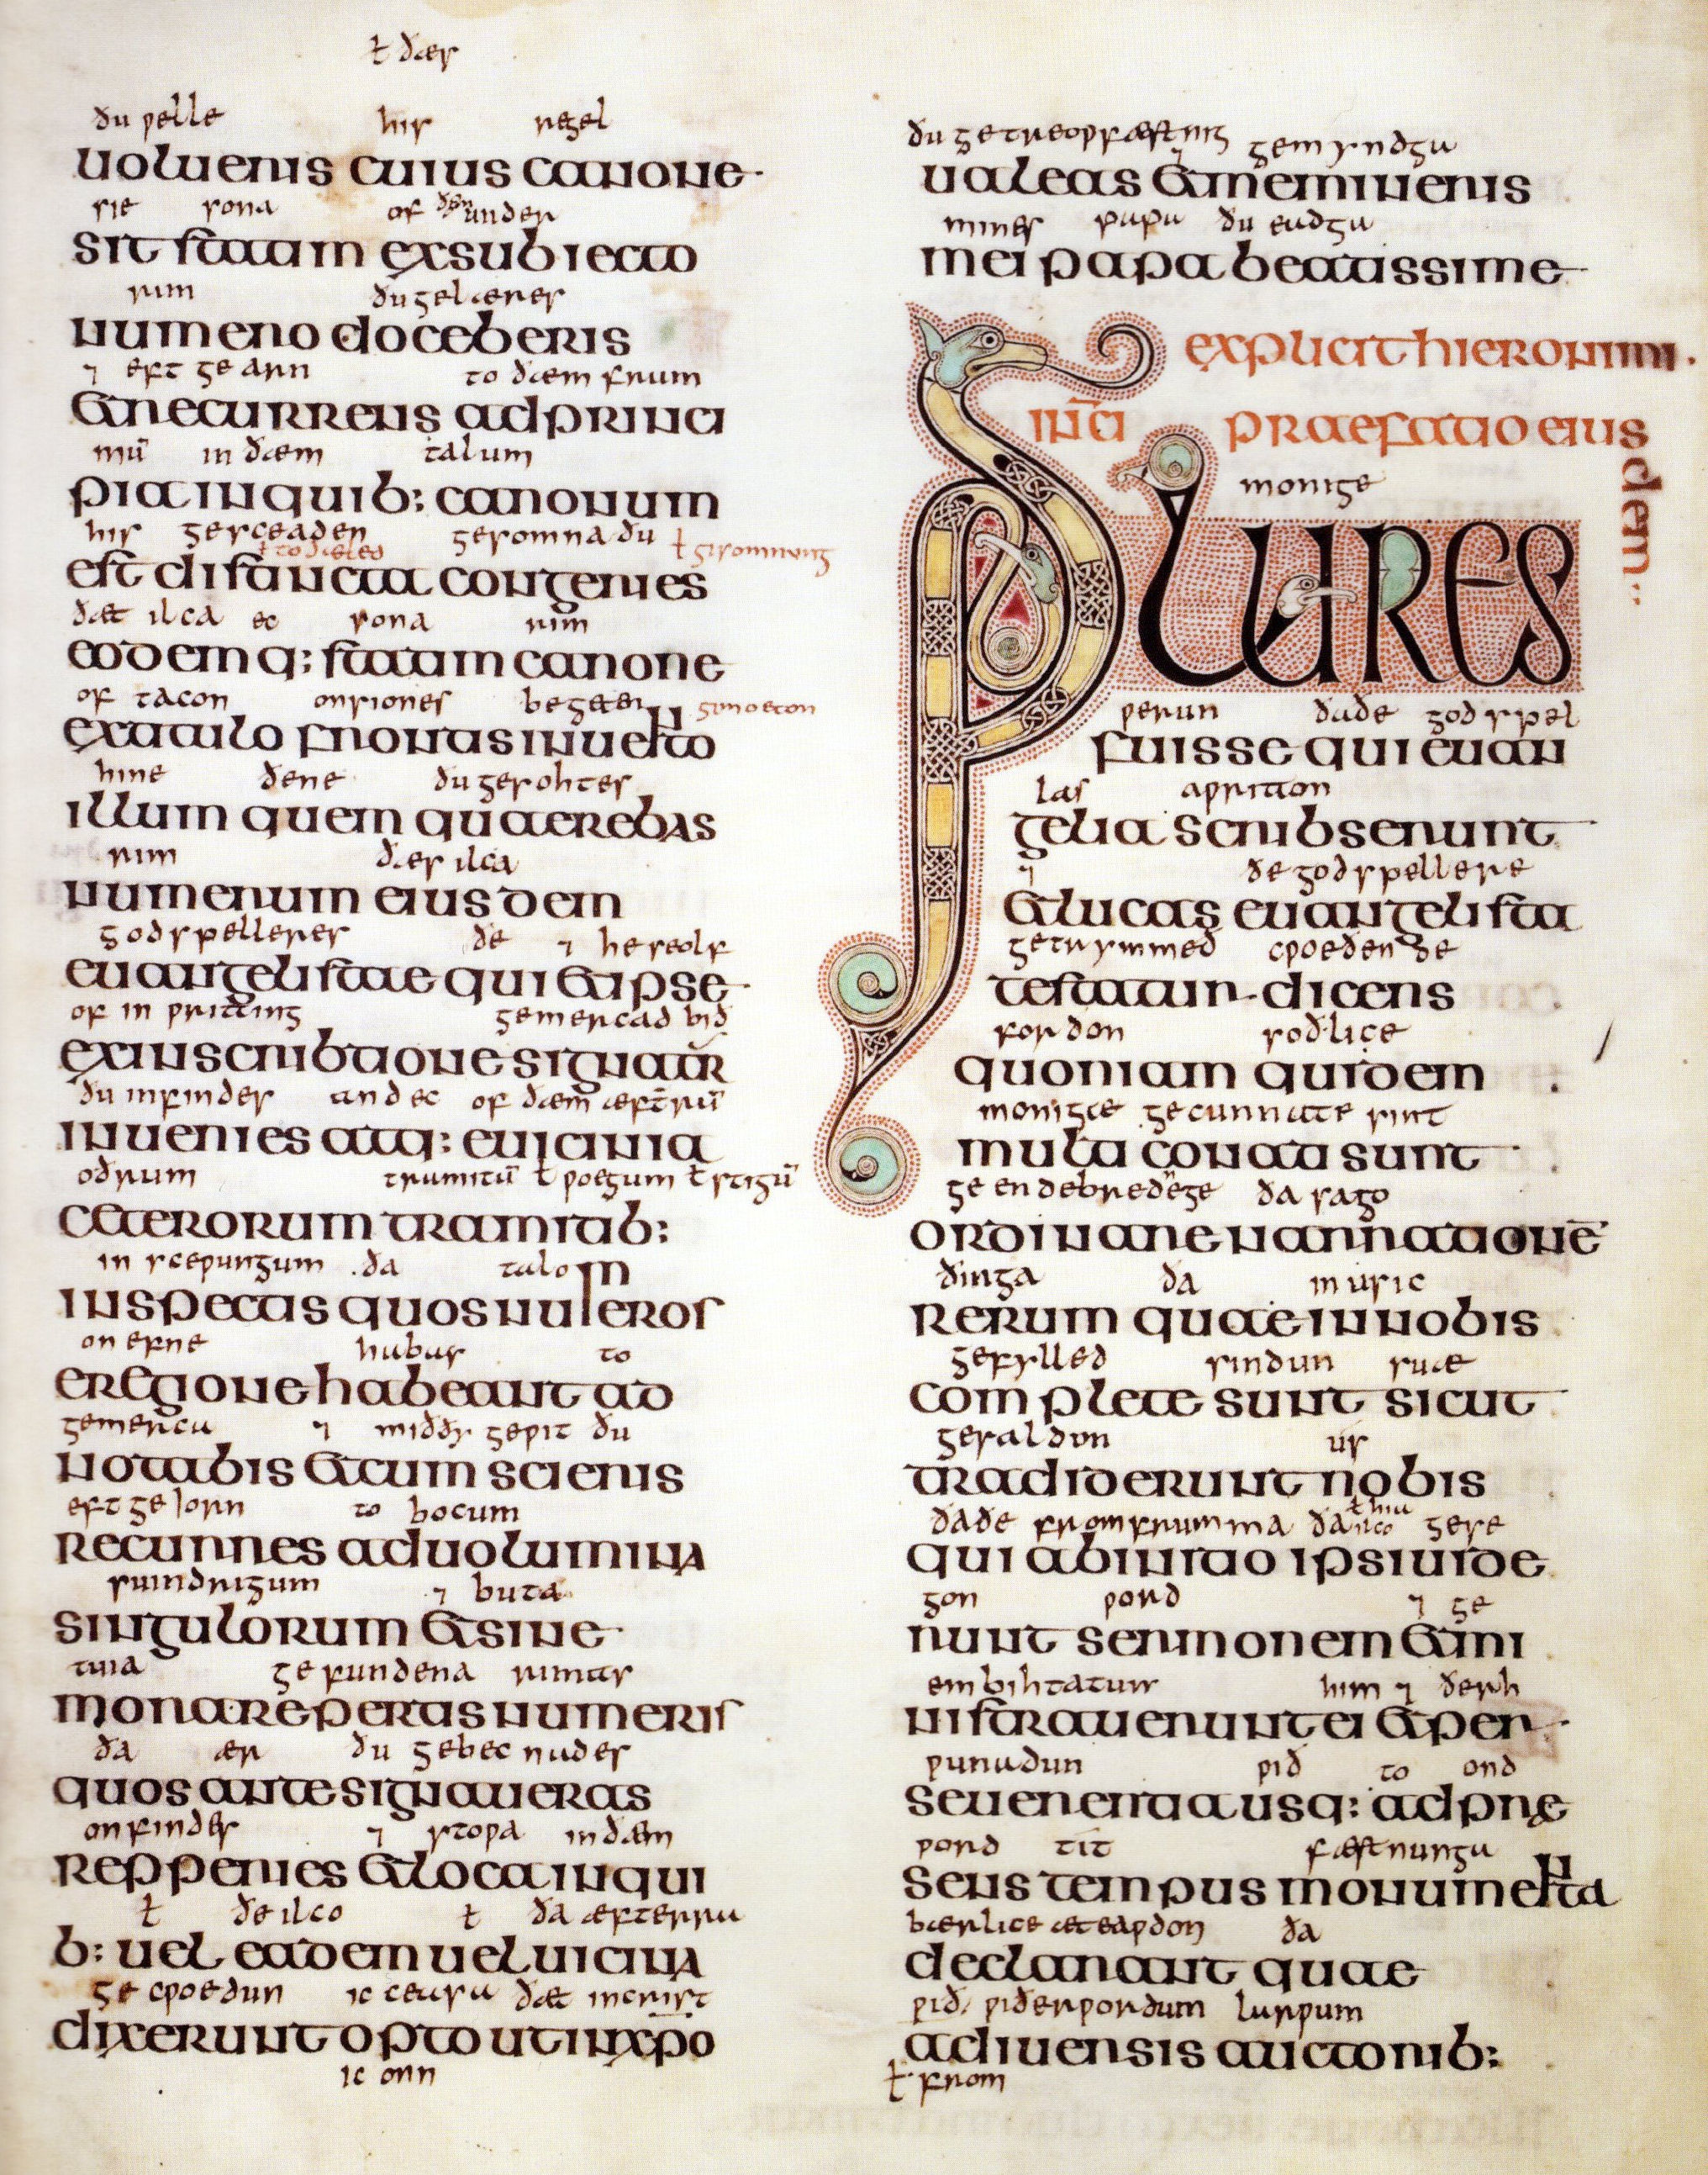 ł ðær
ðu ƿelle his regel
uolueris cuius canone
sie sona of ðęm under
sit statim ex subiecto
rim ðu gelæres
numero doceberis
⁊ eft ge arn to ðæm frum
& recurrens ad princi
mū in ðæm talum
pia in quib: canonum
his gesceaden gesomna ðu ł gisomnung
ł todæled
est distincta congeries
ðæt ilca ec sona rim
eodemq; statim canone
of tacon onsiones begeten gimoeton
ex titulo frontis inuento
hine ðene ðu gesohtes
illum quem quaerebas
rim ðæs ilca
numerum eiusdem
godspelleres ðe ⁊ he seolf
euangelistae qui & ipse
of in ƿritting gemercad bið
ex inscribtione signatur
ðu infindes and ec of ðæm æft̄rū
inuenies atq: e uicinia
oðrum trumitū ł ƿoegum ł stigū
ceterorum tramitib:
in sceƿungum ða talo
inspectis quos numeros
on efne habas to
e regione habeant ad
gemercu ⁊ miððy geƿit ðu
notabis & cum scieris
eft ge iorn to bocum
recurres ad uolumina
syndrigum ⁊ buta
singulorum & sine
tuia ge fundena rimas
mora repertis numeris
ða ær ðu gebecnades
quos ante signaueras
onfindes ⁊ stoƿa in ðæm
repperies & loca in qui
ł ðe ilco ł ða æfterra
b: uel eadem uel uicina
ge cƿoedun ic ceasa ðæt in crist
dixerunt opto ut in xp̄o
ic onn
ðu getreoƿfæstnig ⁊ gemyndga
ualeas & memineris
mines paƿa ðu eadga
mei papa beatissime
explicit hieronimi.
inc̄i praefatio eius
dem..
monige
plures
ƿerun ðaðe godspel
fuisse qui euan
las aƿritton
gelia scribserunt
⁊ ðe godspellere
& lucas euangelista
getrymmeð cƿoeðende
testatur dicens
fordon soðlice
quoniam quidem
monigæ gecunnate sint
multi conati sunt
ge endebredege ða sago
ordinare narrationē
ðinga ða in usic
rerum quae in nobis
gefylled sindun suæ
complete sunt sicut
gesaldon us
tradiderunt nobis
ðaðe fromfrumma ða ilco ł hiu gese
qui ab initio ipsi uide
gon ƿord ⁊ ge
runt sermonem & mi
embihtatun him ⁊ ðerh
nistrauerunt ei & per
ƿunadun ƿið to ond
seuerentia usq: ad prę
ƿord tit fæstnunga
sens tempus monumenta
bærlice æteaƿdon ða
declarant quae
ƿið ƿiðerƿordum lurƿum
a diuersis auctorib:
ł from